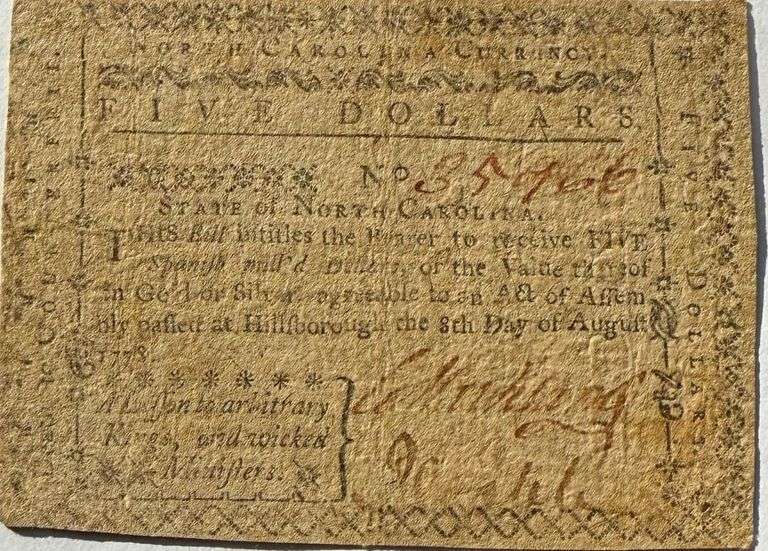 NORTH CAROLINA CURRENCY.
FIVE DOLLARS
No
STATE of NORTH CAROLINA.
THIS Bill intitles the Bearer to receive FIVE
Spanish mill'd Dollars, or the Value thereof
in Gold or Silver, agreeable to an Act of Assem
bly passed at Hillsborough the 8th Day of August
1778.
A Lesson to arbitrary
Kings, and wicked
Ministers.
FIVE DOLLARS